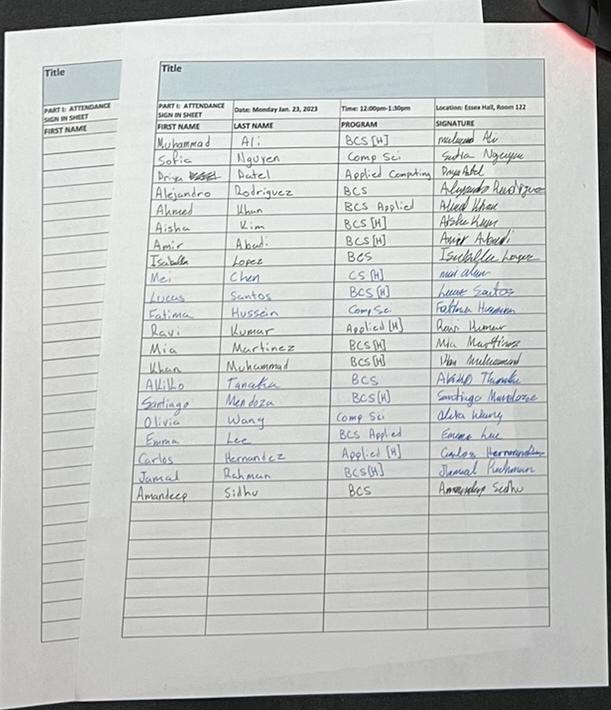 Title
PART I: ATTENDANCE
SIGN IN SHEET
FIRST NAME
Title
PART I: ATTENDANCE SIGN IN SHEET Date: Monday Jan. 23, 2023 Time: 12:00pm-1:30pm Location: Essex Hall, Room 122
FIRST NAME LAST NAME PROGRAM SIGNATURE
Muhammad Ali BCS [H] Ali
Sofia Nguyen Comp Sci Sofia Nguyen
Priya Patel Applied Computing Priya Patel
Alejandro Rodriguez BCS Alejandro Rodriguez
Ahmed Khan BCS Applied Ahmed Khan
Aisha Kim BCS [H] Aisha Kim
Amir Abadi BCS [H] Amir Abadi
Isabella Lopez BCS Isabella Lopez
Mei Chen CS [H] mei chen
Lucas Santos BCS [H] Lucas Santos
Fatima Hussein Comp Sci Fatima Hussein
Ravi Kumar Applied [H] Ravi Kumar
Mia Martinez BCS [H] Mia Martinez
Khan Muhammad BCS [H] Khan Muhammad
Akiko Tanaka BCS Akiko
Santiago Mendoza BCS [H] Santiago Mendoza
Olivia Wang Comp Sci Olivia Wang
Emma Lee BCS Applied Emma Lee
Carlos Hernandez Applied [H] Carlos Hernandez
Jamal Rahman BCS [H] Jamal Rahman
Amandeep Sidhu BCS Amandeep Sidhu